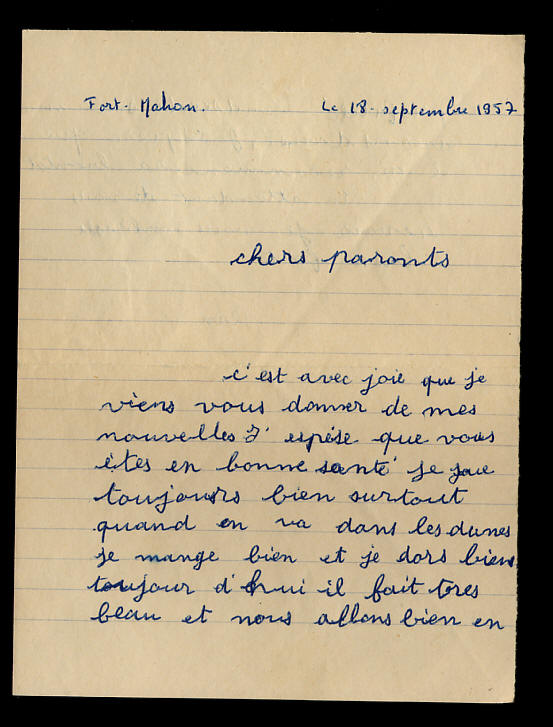 Fort-Mahon. Le 18-septembre 1957
chers paronts
c'est avec joie que je
viens vous donner de mes
nouvelles J' espése que vous
êtes en bonne santé je joue
toujours bien surtout
quand on va dans les dunes
je mange bien et je dors biens
toujour d'hui il fait tores
beau et nous allons bien en